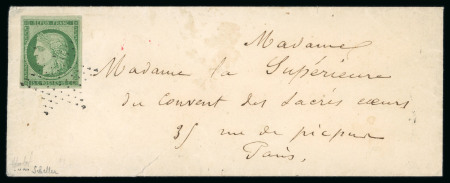 REPUB. FRANC.
Madame
Madame la Supérieure
du Couvent des Sacrés cœurs
35 rue de picpus
Paris.
Scheller